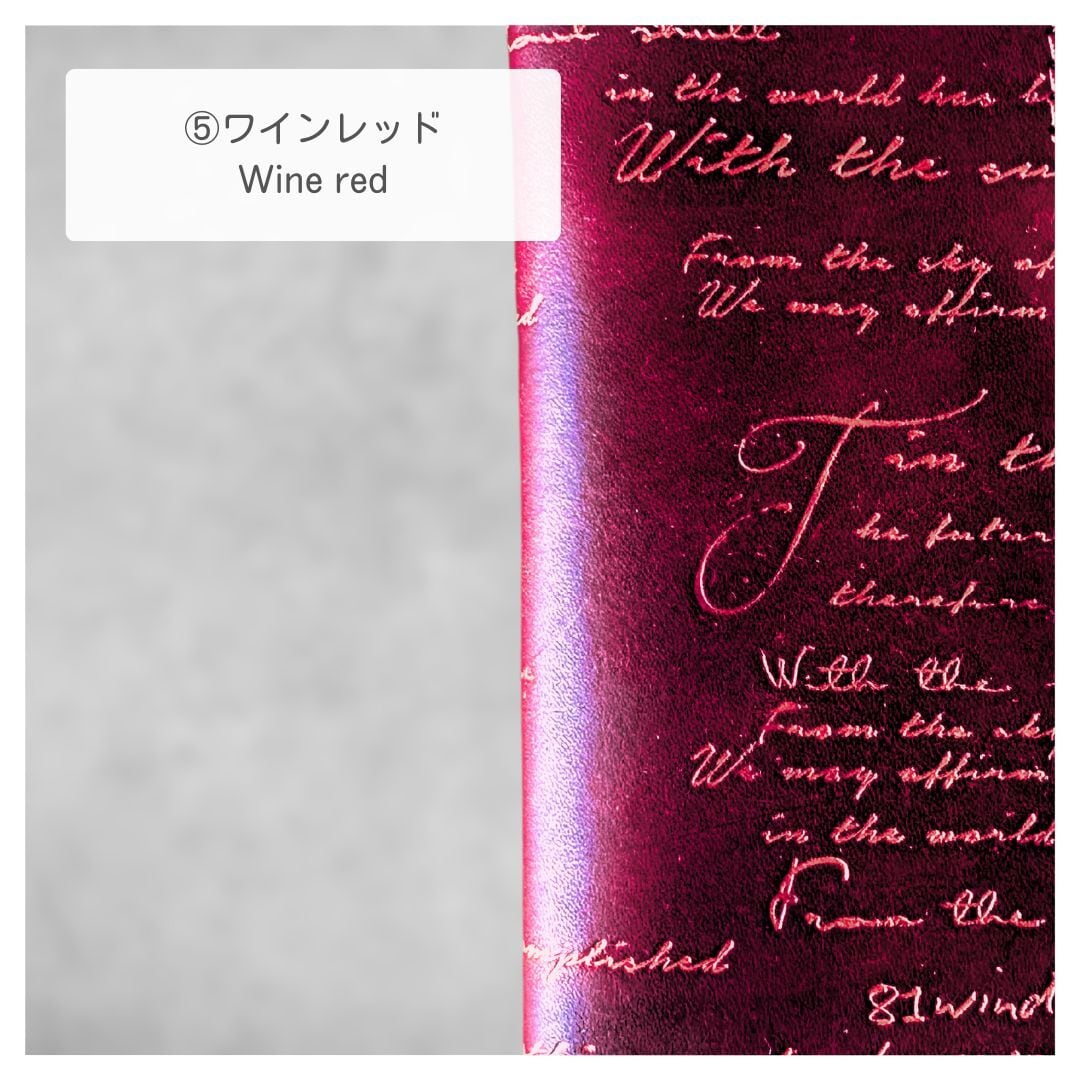 ⑤ワインレッド
Wine red
in the world has
With the
From the sky of
We may affirm
d
T in
he
therefore
With the
From the sky
We may affirm
in the world
From the
mplished
81wind